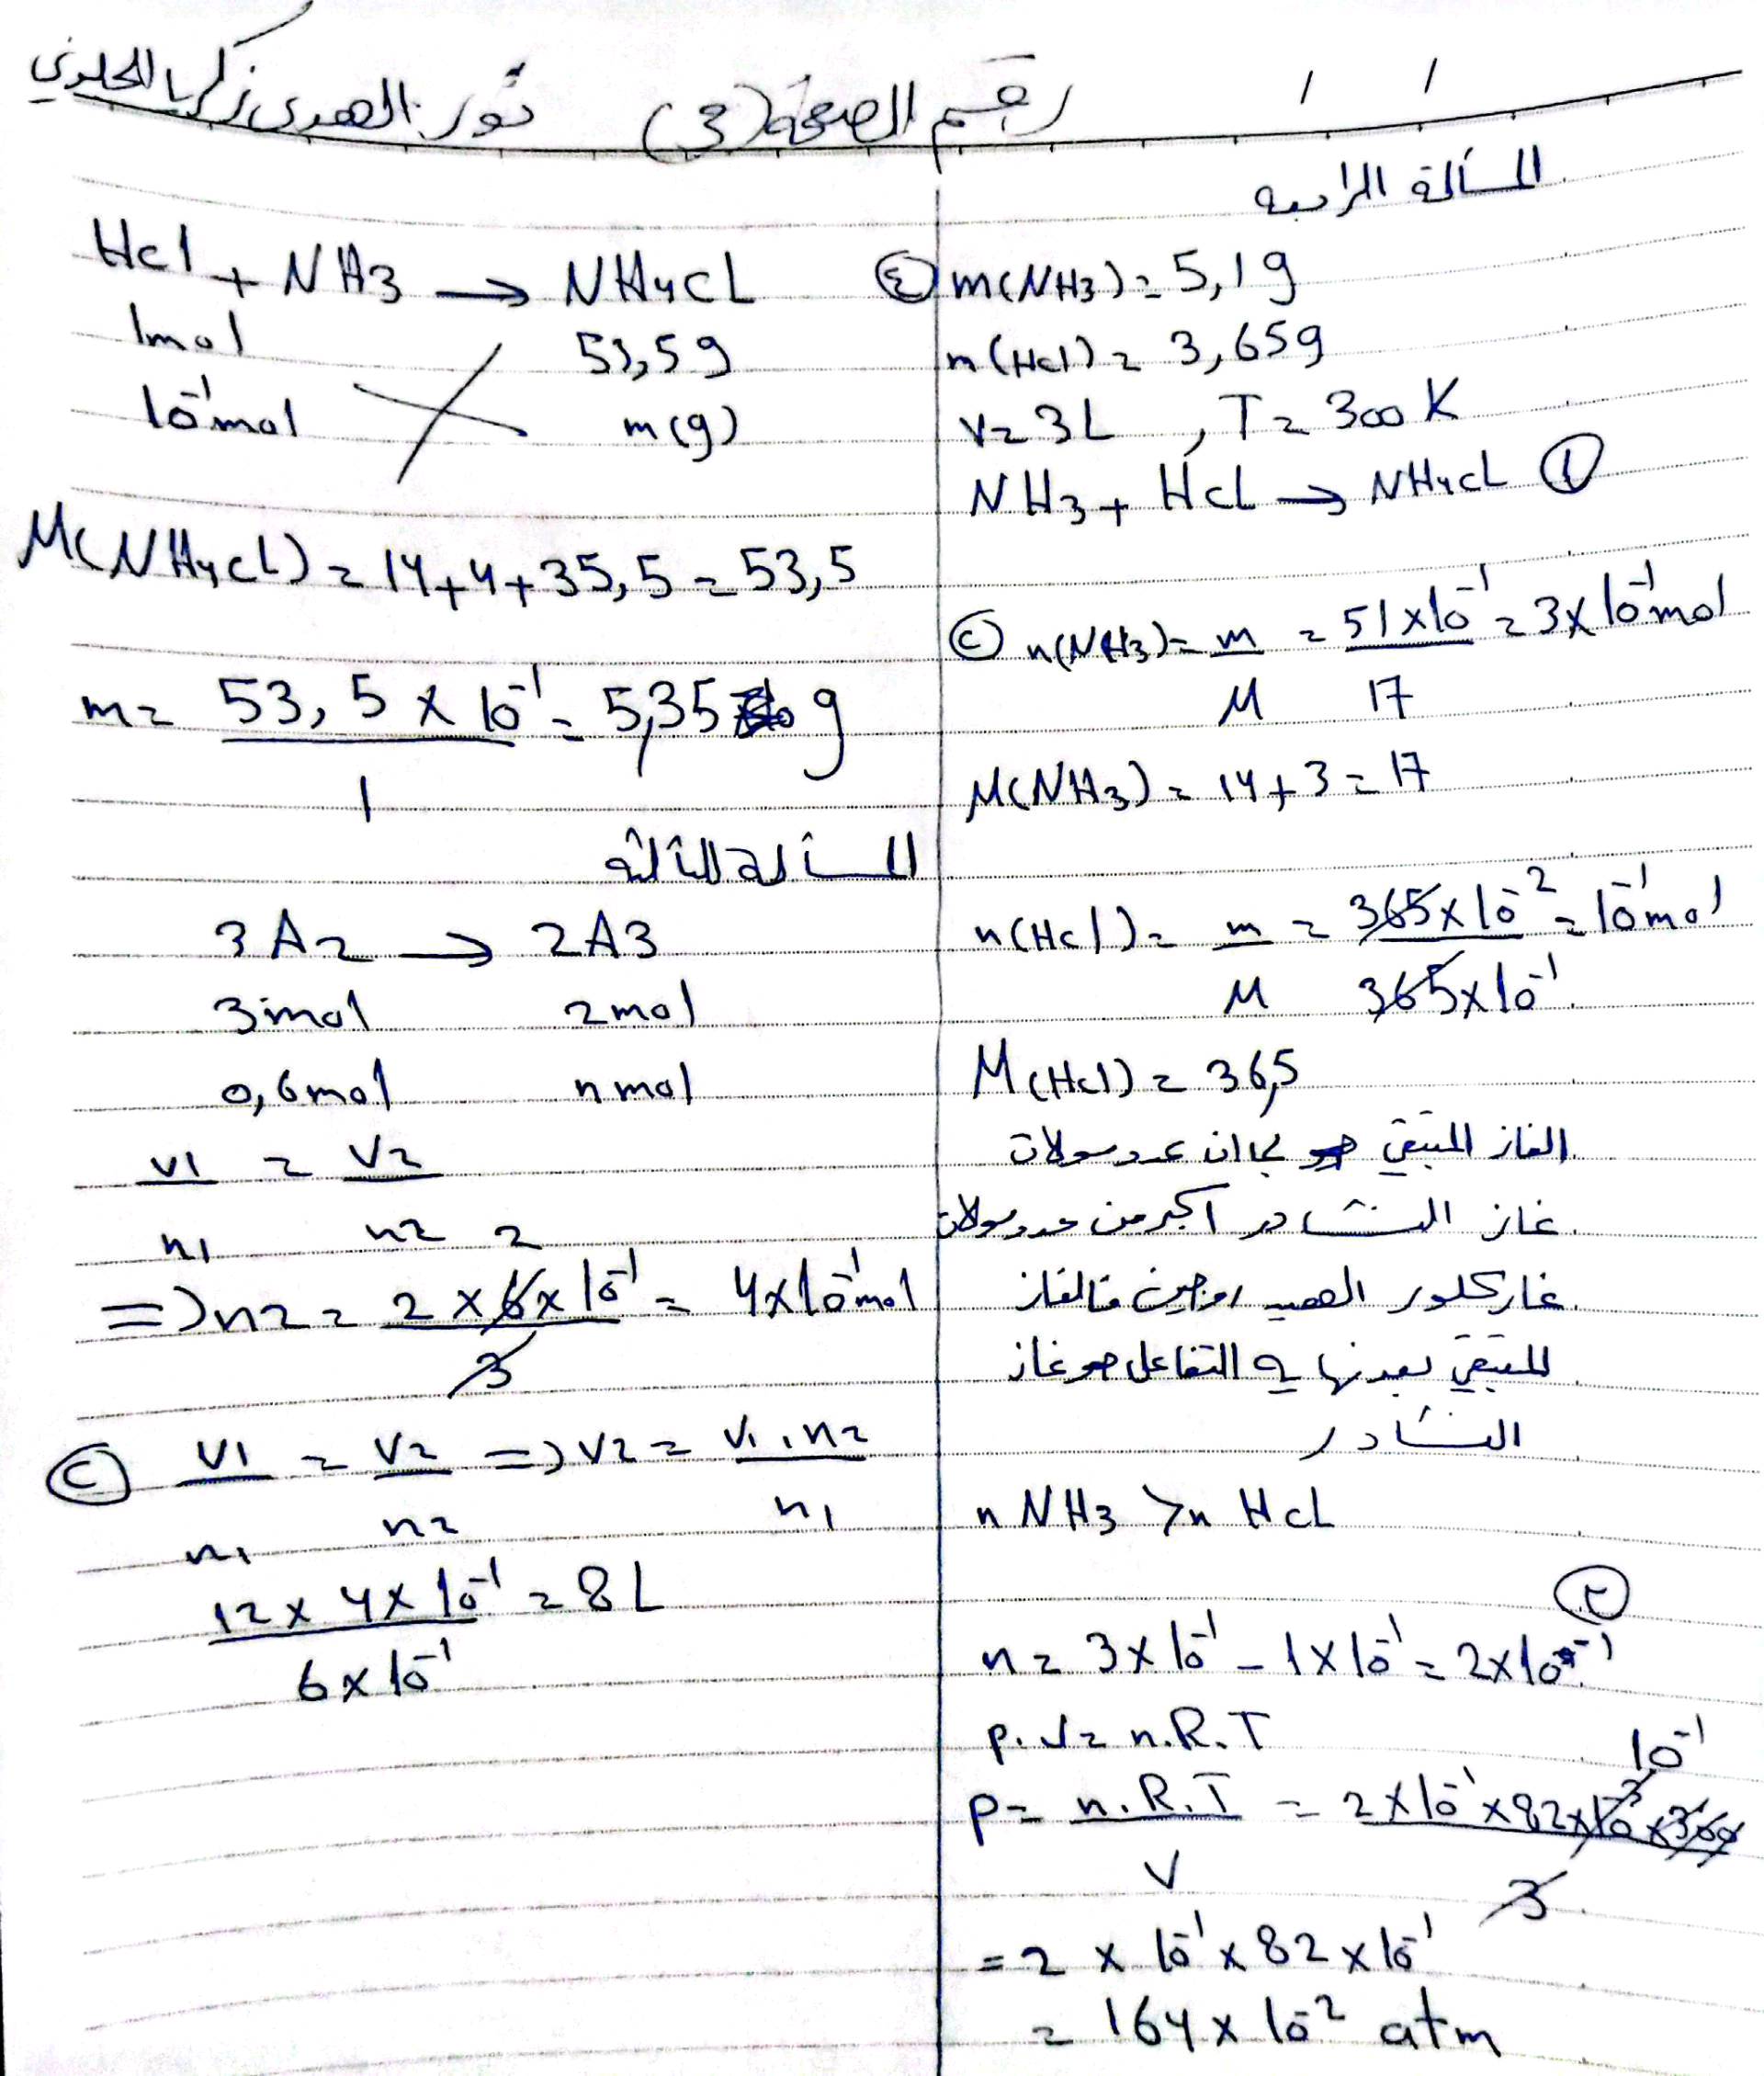 رقم الصفحة (3) نور الهدى زكريا الحلوني
/ /
المسألة الرابعه
m(NH3) = 5,1g
m(Hcl) = 3,65g
V = 3L , T = 300 K
NH3 + HcL → NH4cL ①
② n(NH3) = m/M = 51×10⁻¹/17 = 3×10⁻¹mol
M(NH3) = 14+3 = 17
n(Hcl) = m/M = 365×10⁻²/365×10⁻¹ = 10⁻¹mol
M(Hcl) = 36,5
الغاز المتبقي بما ان عدد مولات
غاز النشادر أكبر من عدد مولات
غاز كلور الهيدروجين فالغاز
المتبقي بعد نهاية التفاعل هو غاز
النشادر
n NH3 > n HcL
③
n = 3×10⁻¹ - 1×10⁻¹ = 2×10⁻¹
p.V = n.R.T
10⁻¹
p = n.R.T/V = 2×10⁻¹×82×10⁻³×300/3
= 2 × 10⁻¹ × 82 × 10⁻¹
= 164 × 10⁻² atm
④
Hcl + NH3 → NH4CL
1mol 53,5g
10⁻¹mol m(g)
M(NH4CL) = 14+4+35,5 = 53,5
m = 53,5 × 10⁻¹/1 = 5,35 g
المسألة الثالثه
3A2 → 2A3
3mol 2mol
0,6mol n mol
V1/n1 = V2/n2
2
=> n2 = 2×6×10⁻¹/3 = 4×10⁻¹mol
② V1/n1 = V2/n2 => V2 = V1.n2/n1
12×4×10⁻¹/6×10⁻¹ = 8L